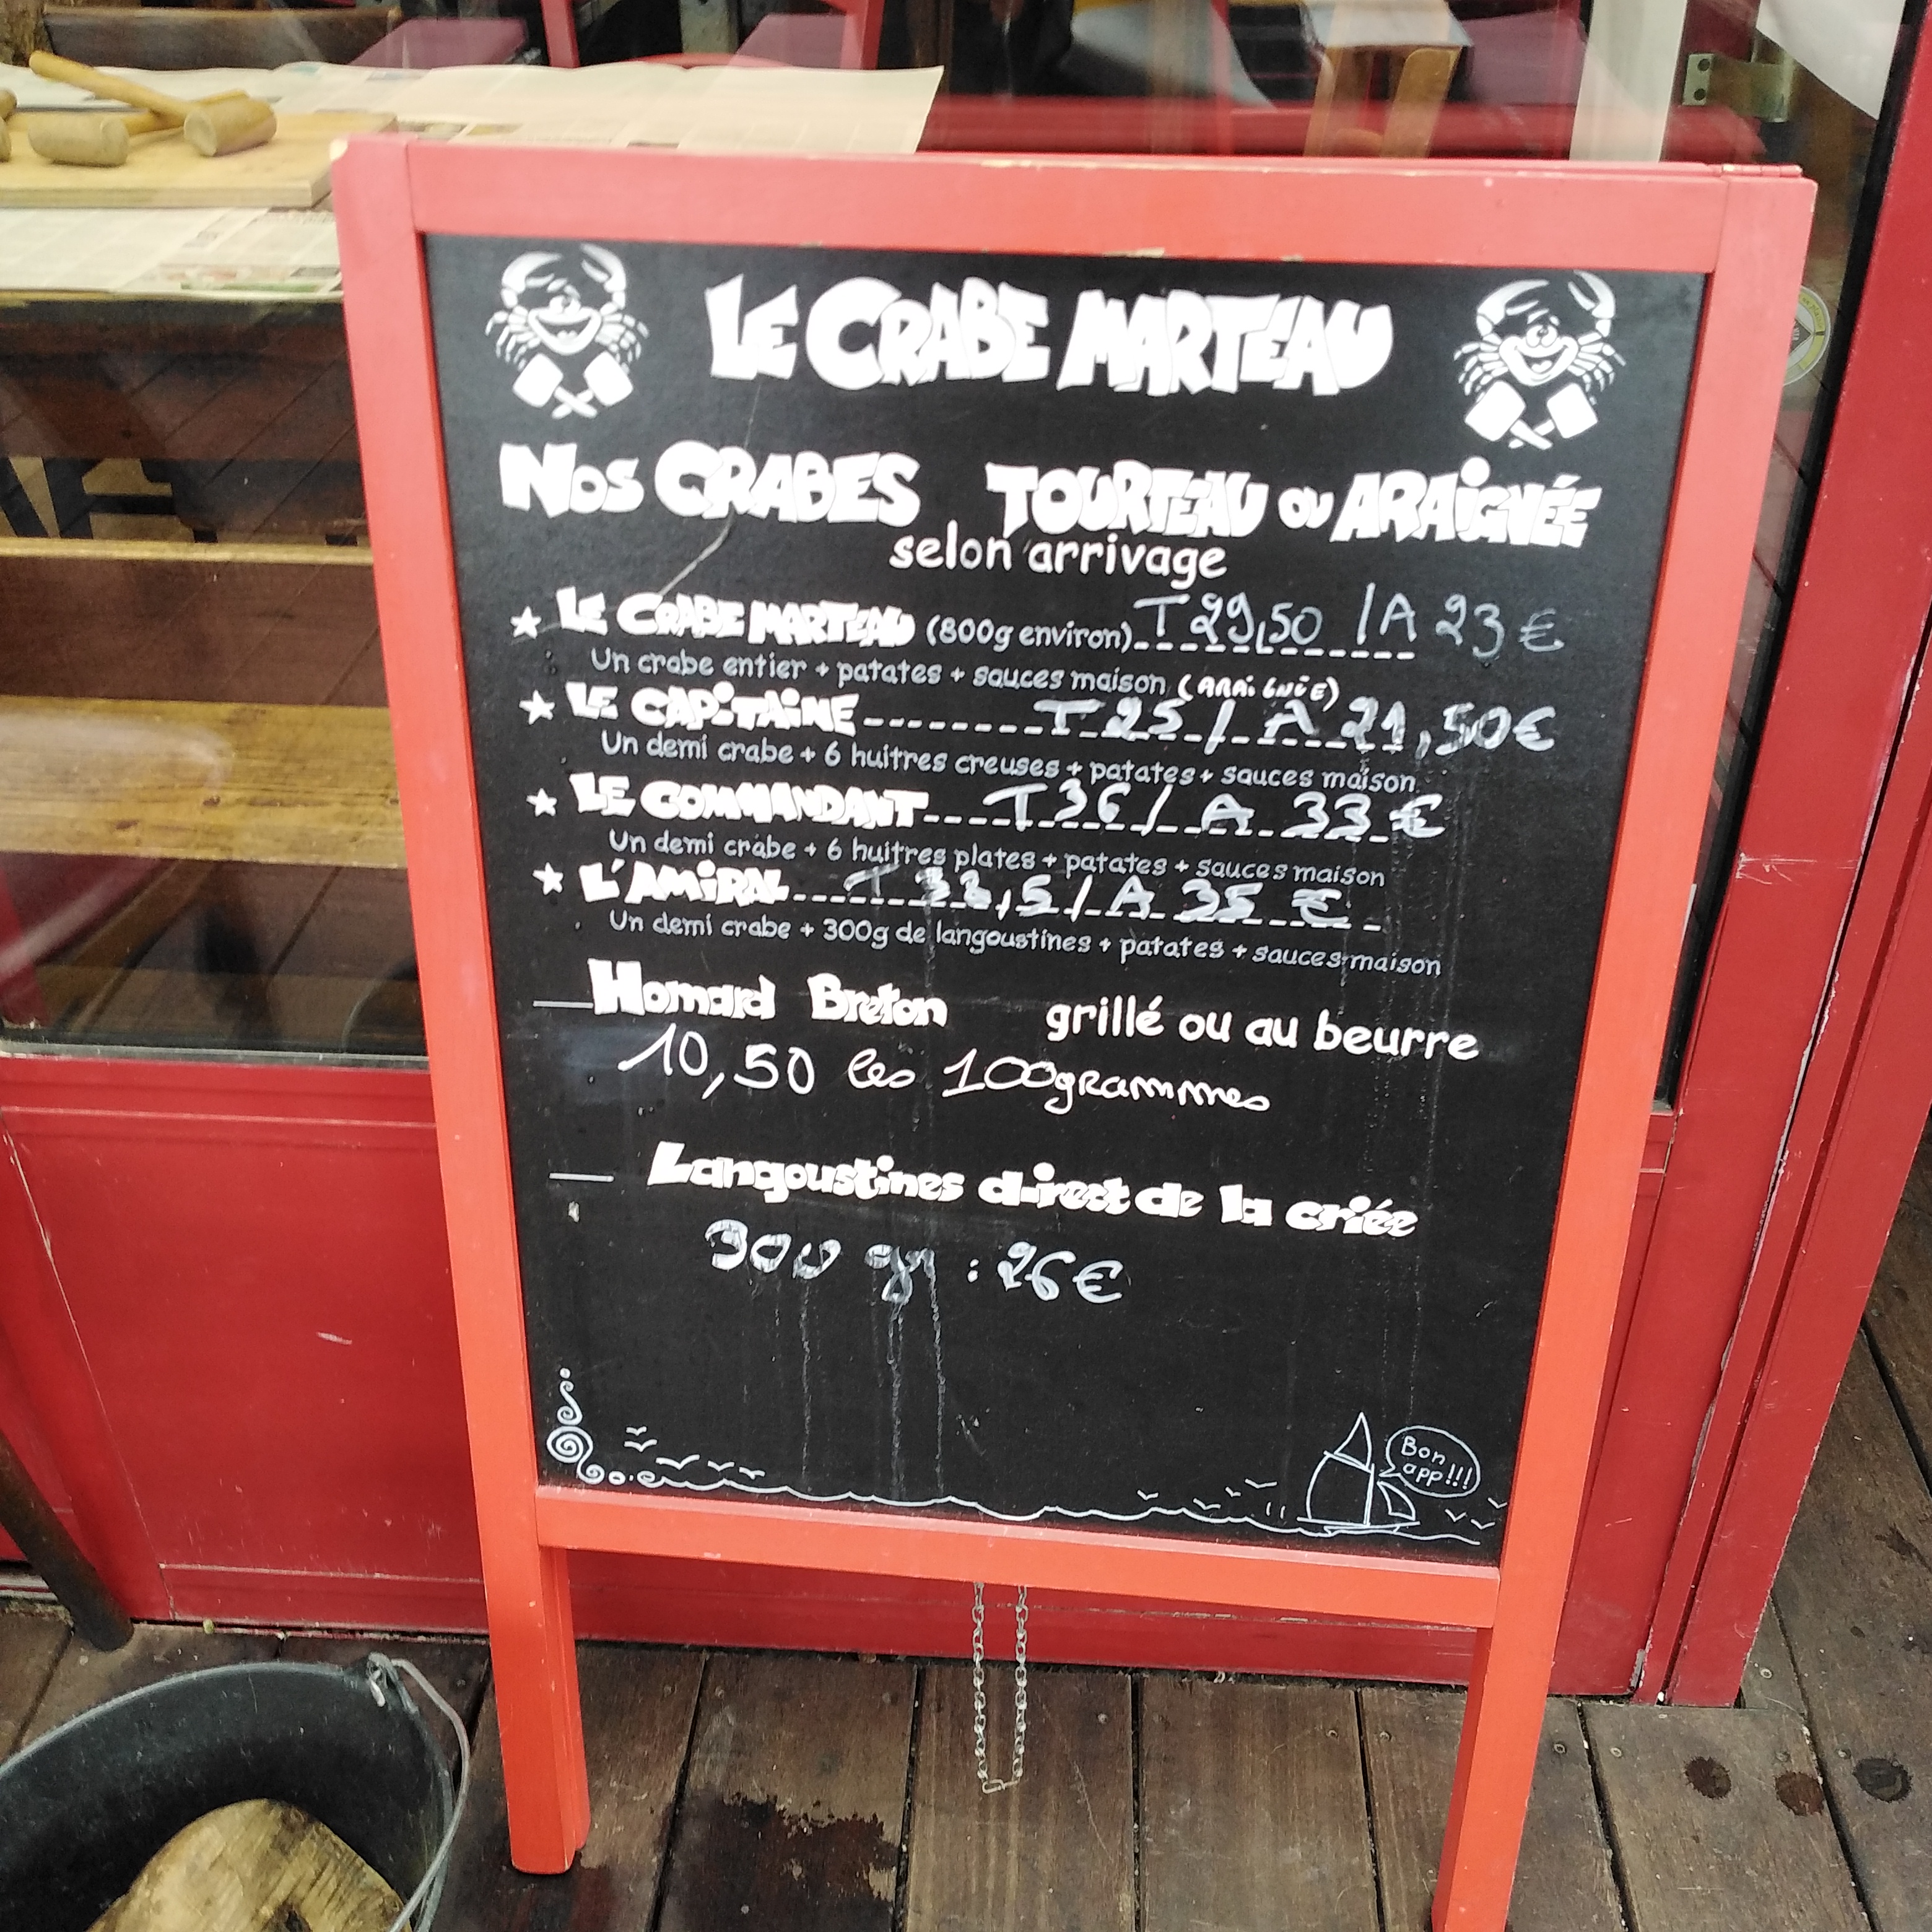 LE CRABE MARTEAU
NOS CRABES TOURTEAU OU ARAIGNÉE
selon arrivage
LE CRABE MARTEAU (800g environ) T 29,50 / A 23 €
Un crabe entier + patates + sauces maison (ARAIGNÉE)
LE CAPITAINE T 25 / A 21,50€
Un demi crabe + 6 huitres creuses + patates + sauces maison
LE COMMANDANT T 36 / A 33 €
Un demi crabe + 6 huitres plates + patates + sauces maison
L'AMIRAL T / A 35 €
Un demi crabe + 300g de langoustines + patates + sauces maison
Homard Breton grillé ou au beurre
10,50 les 100grammes
Langoustines direct de la criée
300 gr : 26€
Bon
app!!!